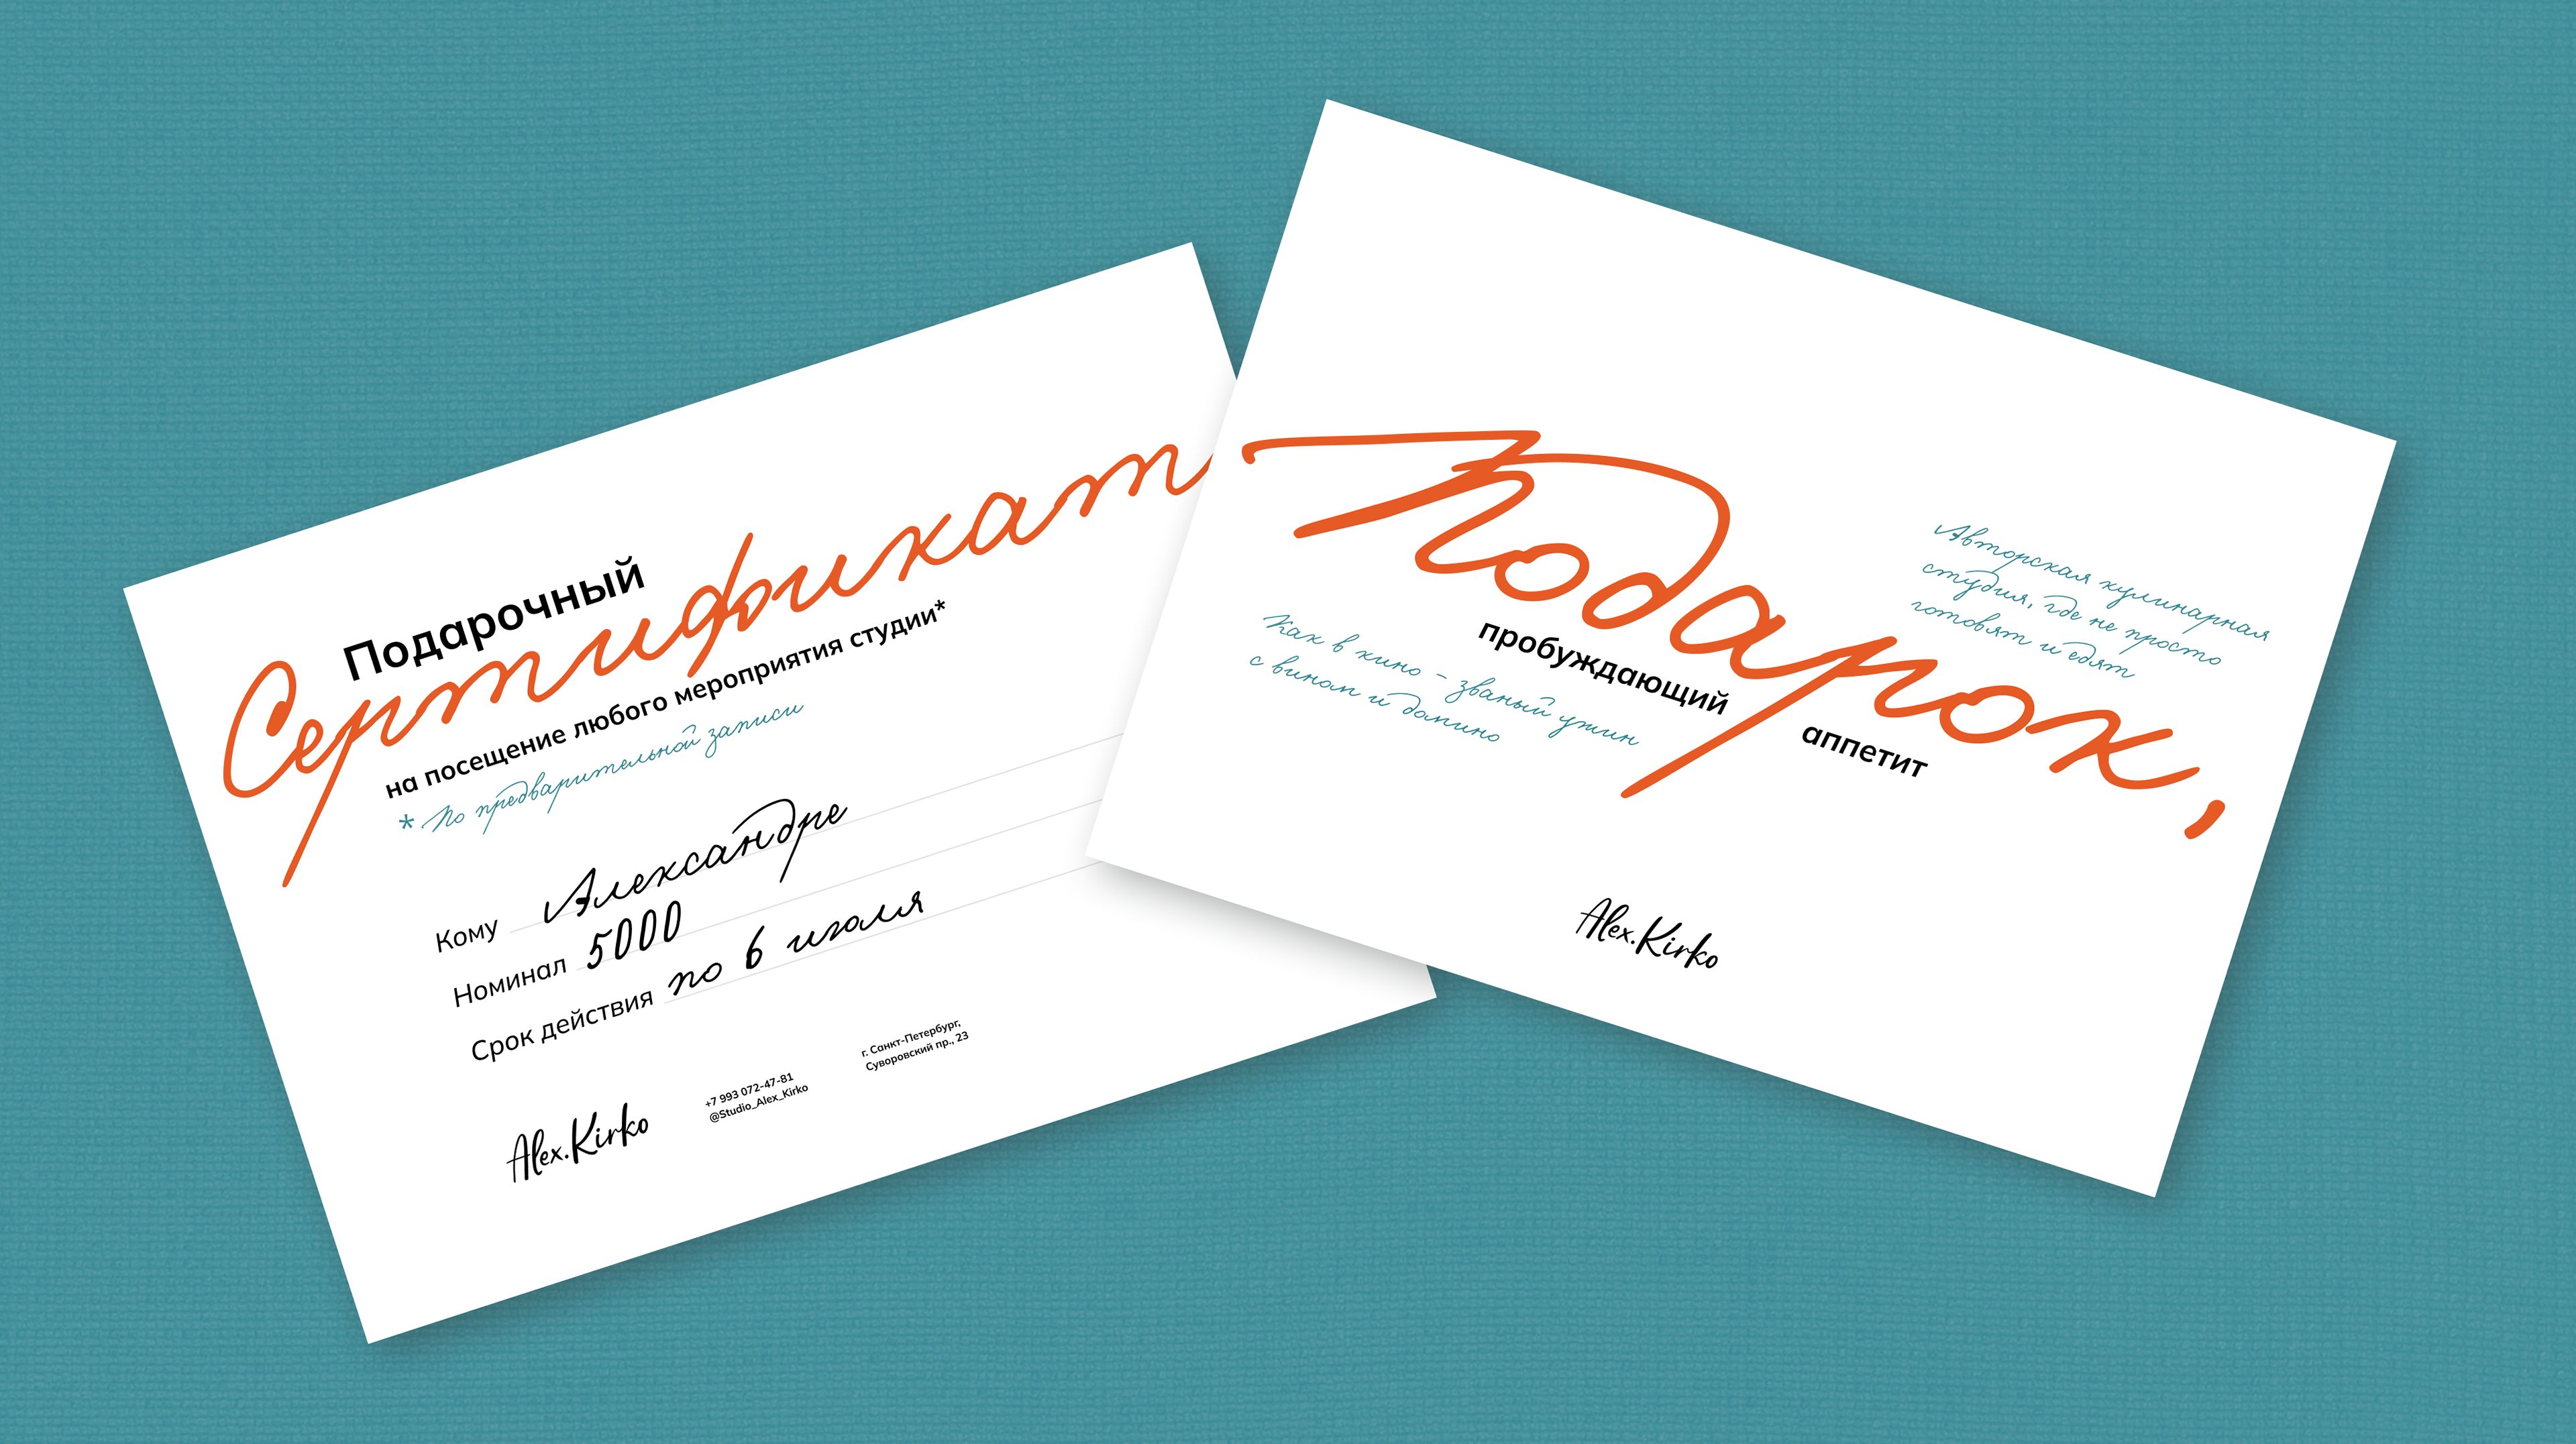 Подарочный
Сертификат
на посещение любого мероприятия студии*
* По предварительной записи
Кому Александре
Номинал 5000
Срок действия по 6 июля
Alex.Kirko
+7 993 072-47-81
@Studio_Alex_Kirko
г. Санкт-Петербург,
Суворовский пр., 23
Подарок,
пробуждающий аппетит
Авторская кулинарная
студия, где не просто
готовят и едят
Как в кино - званый ужин
с вином и домино
Alex.Kirko